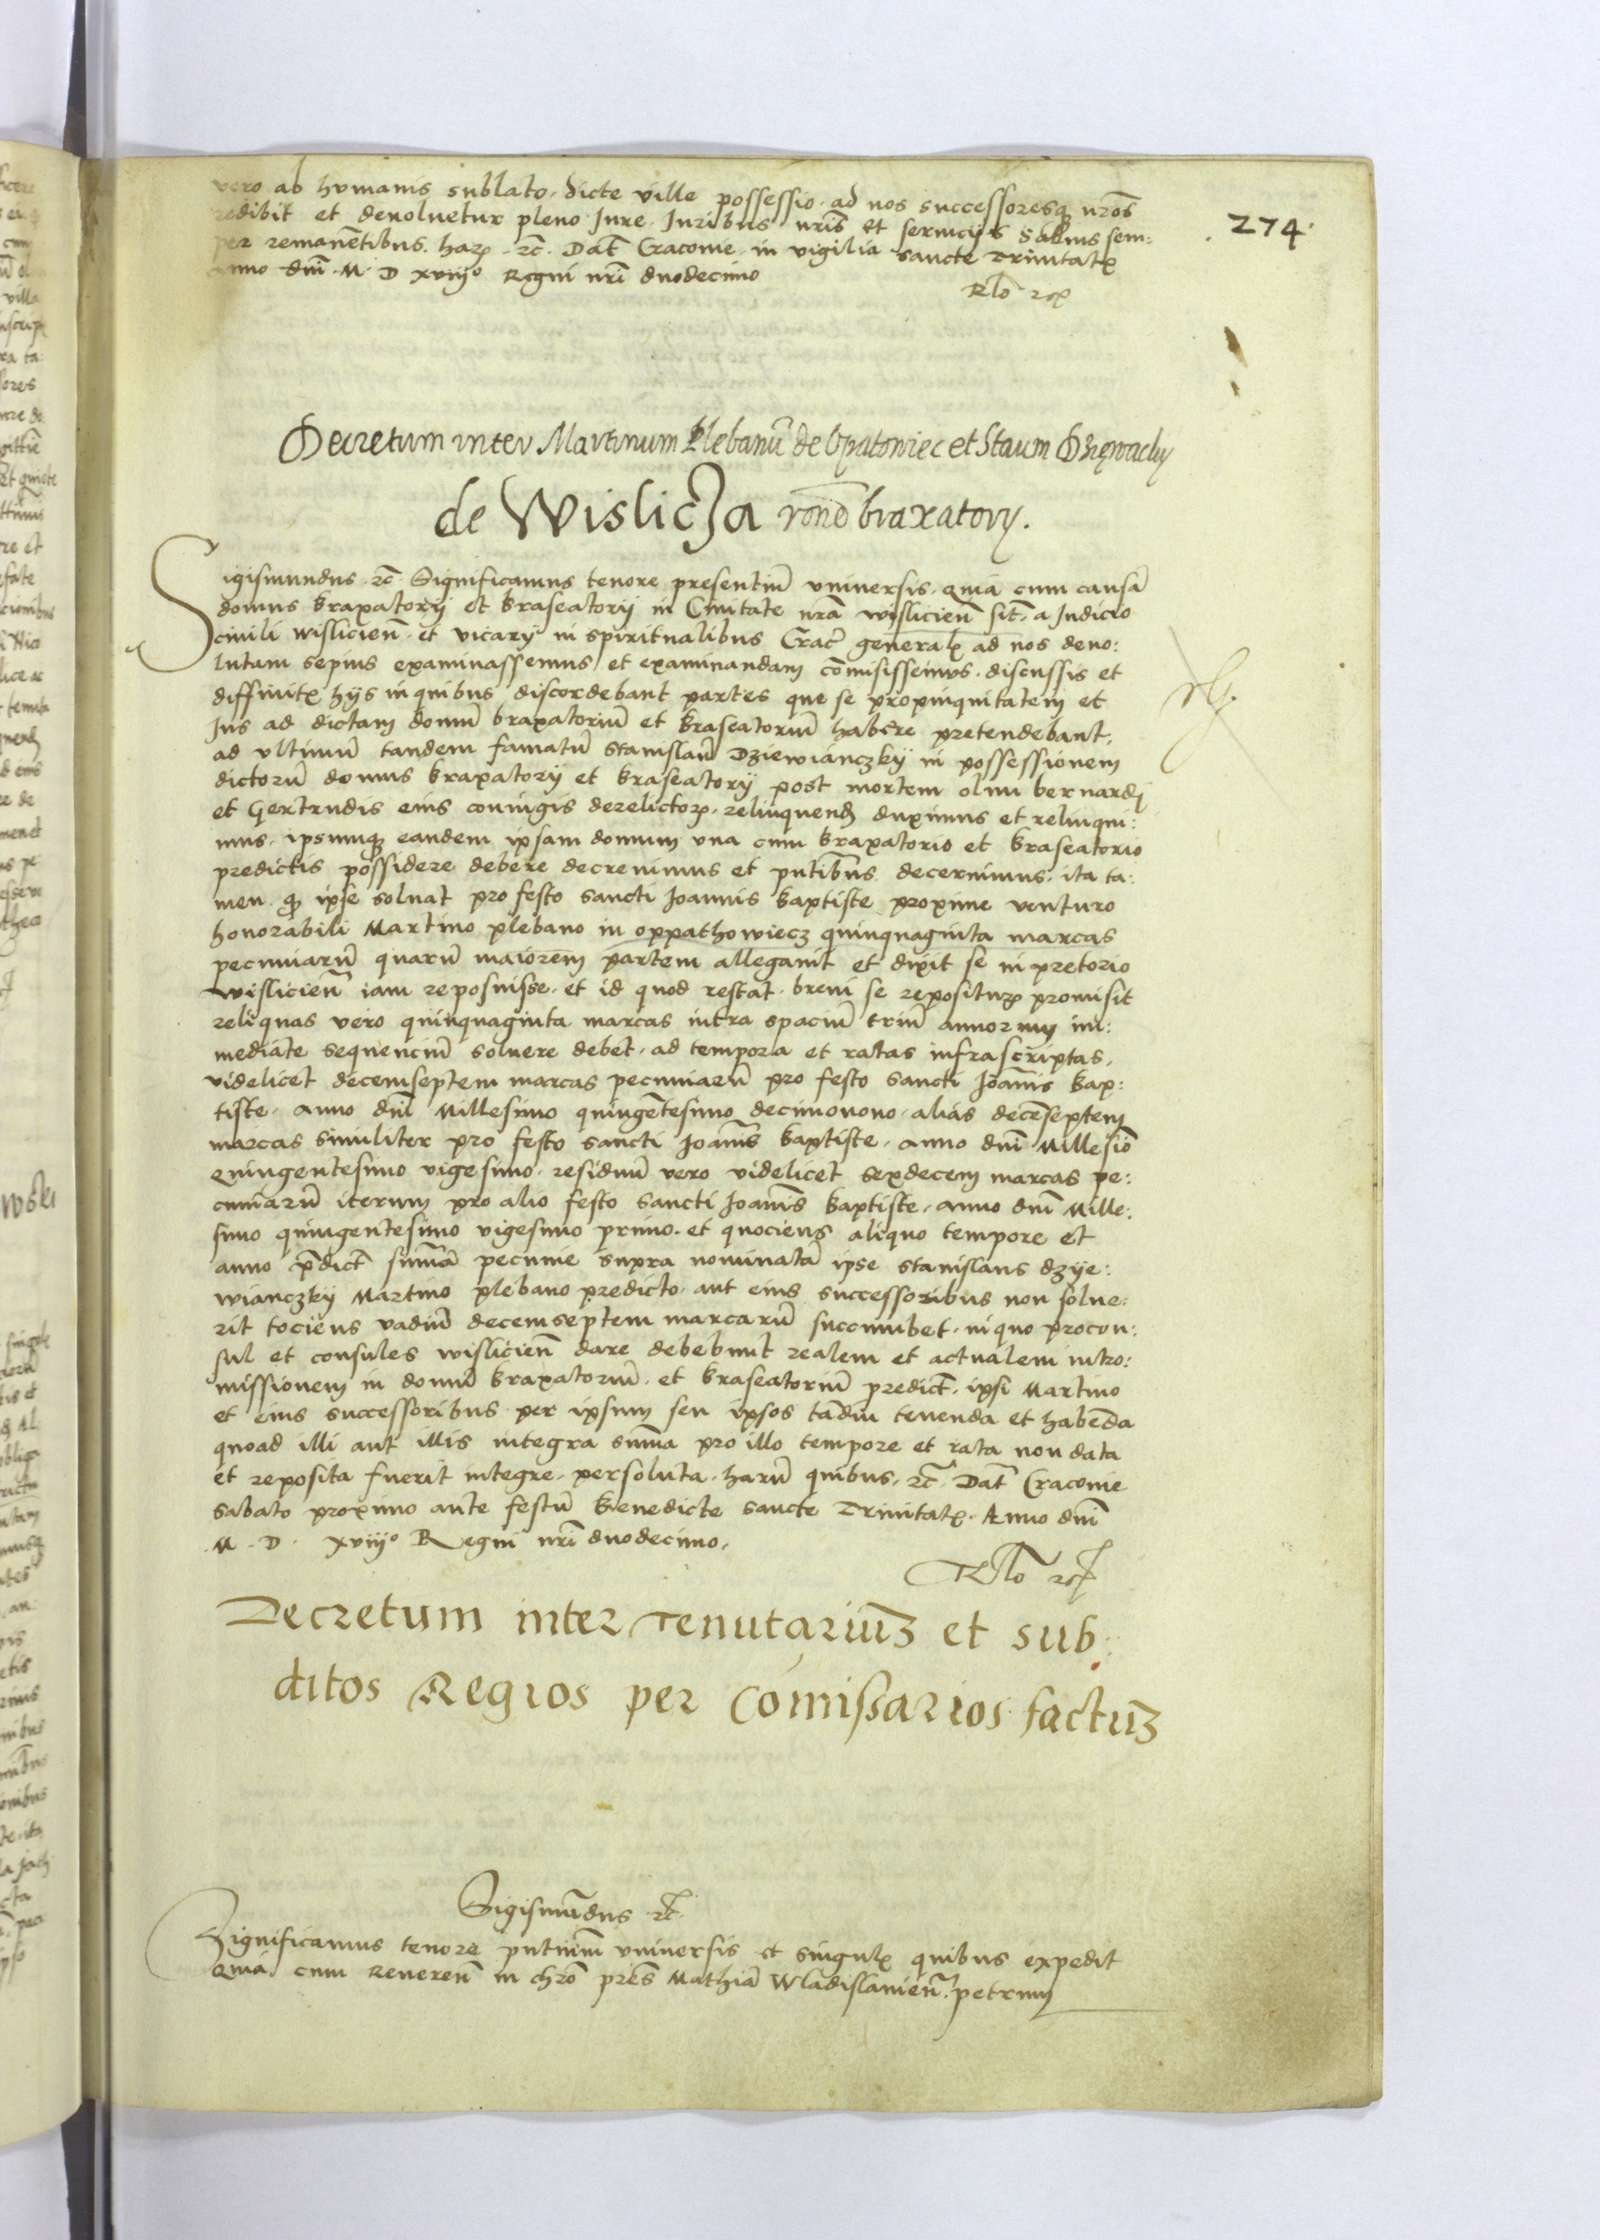 vero ab humanis sublato. dicte ville possessio. ad nos successoresq nrōs
redibit et devoluetur pleno Jure. Juribus nrīs et servicijs Salvis sem:
per remanētibus. harꝝ. ꝛc̄. Dat̄ Cracovie. in vigilia sancte Trinitatꝭ
anno dn̄i. M. D xviijº Regni nrī duodecimo
Rlō ꝛcꝭ
274.
Decretum inter Martinum Plebanū de Opatoviec et Staum
de Wisliczа rōne braxatory.
Sigismundus. ꝛc̄. Significamus tenore presentiū universis. quia cum causā
domus braxatorij et braseatorij in Civitate nrā wisliciēn sit. a Judicio
civili wisliciēn. et vicarij in spiritualibus Crac̄ generalꝭ ad nos devo:
lutam sepius examinassemus et examinandam cōmisissemus. discussis et
diffinitꝭ hijs in quibus discordebant partes que se propinquitatem et
Jus ad dictam domū braxatoriū et braseatoriū habere pretendebant.
ad ultimū tandem famatū Stanislaū Dziewianczky in possessionem
dictorū domus braxatorij et braseatorij post mortem olim bernardi
et Gertrudis eius coniugis derelictorꝝ. relinquend duximus et relinqui:
mus. ipsumqꝫ eandem ipsam domum una cum braxatorio et braseatorio
predictis possidere debere decrevimus et pn̄tibus decernimus. ita ta:
men. ꝙ ipse solvat pro festo sancti Joannis baptiste proxime venturo
honorabili Martino plebano in oppathowiecz quinquaginta marcas
pecuniarū quarū maiorem partem allegavit et dixit se in pretorio
wisliciēn iam reposuisse. et id quod restat. brevi se repositurꝝ promisit
reliquas vero quinquaginta marcas intra spaciū triū annorum im:
mediate sequenciū solvere debet. ad tempora et ratas infrascriptas.
videlicet decemseptem marcas pecuniarū pro festo sancti Joānis bap:
tiste. anno dn̄i Millesimo quingētesimo decimonono. alias decēseptem
marcas similiter pro festo sancti Joānis baptiste. anno dn̄i Millesiō
quingentesimo vigesimo. residuū vero videlicet sexdecem marcas pe:
cuniarū iterum pro alio festo sancti Joānis baptiste. anno dn̄i Mille:
simo quingentesimo vigesimo primo. et quociens aliquo tempore et
anno p̄dict̄ sum̄ā pecunie supra nominatā ipse Stanislaus dzye:
wianczky Martino plebano predicto. aut eius successoribus non solve:
rit tociens vadiū decemseptem marcarū succumbet. in quo procon:
sul et consules wisliciēn dare debebunt realem et actualem intro:
missionem in domū braxatoriū. et braseatorium predict̄. ipsi Martino
et eius successoribus per ipsum seu ipsos tādiu tenenda et habēda
quoad illi aut illis integra sum̄a pro illo tempore et rata non data
et reposita fuerit integre. persoluta. harū quibus. ꝛc̄. Dat̄ Cracovie
sabato proximo ante festū benedicte sancte Trinitatꝭ. Anno dn̄i
.M. D. xviijº Regni nrī duodecimo.
Rlō ꝛcꝭ
Decretum inter Tenutariuꝫ et sub:
ditos Regios per Comissarios factuꝫ
Sigismūdus ꝛc̄.
Significamus tenore pn̄tium universis et singulꝭ quibus expedit
Quia. cum Reverēn in chrō prēs Mathiā Wladislaviēn. petrum